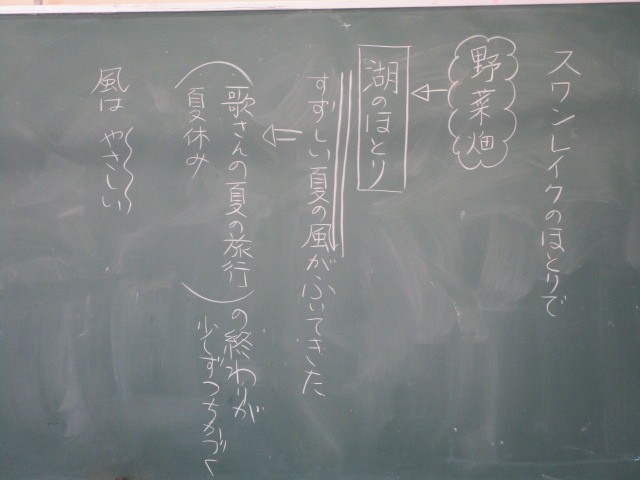 スワンレイクのほとりで
野菜畑
湖のほとり
すずしい夏の風がふいてきた
歌さんの夏の旅行
夏休み
の終わりが
少しずつちかづく
風は やさしい